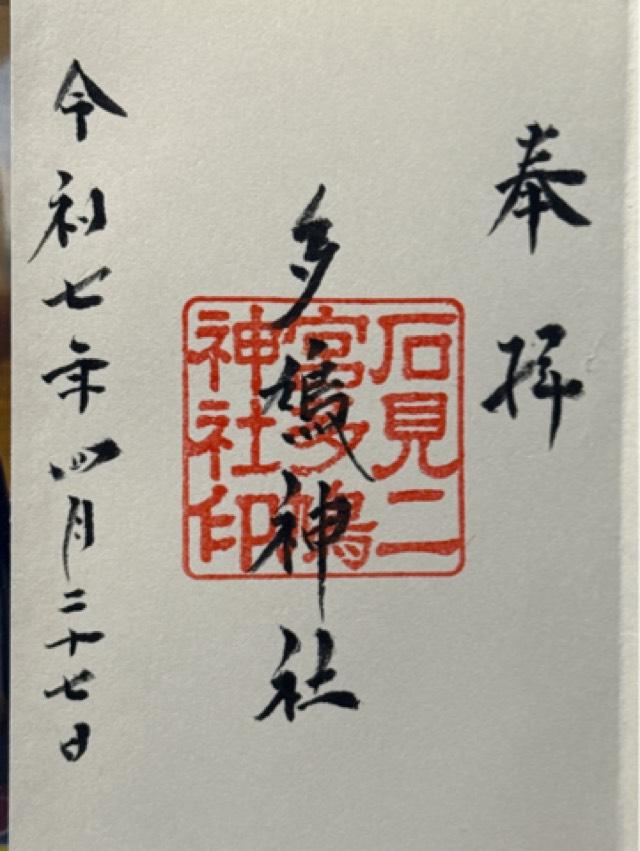 奉拝
石見二
宮多鳩
神社印
多鳩神社
令和七年四月二十七日